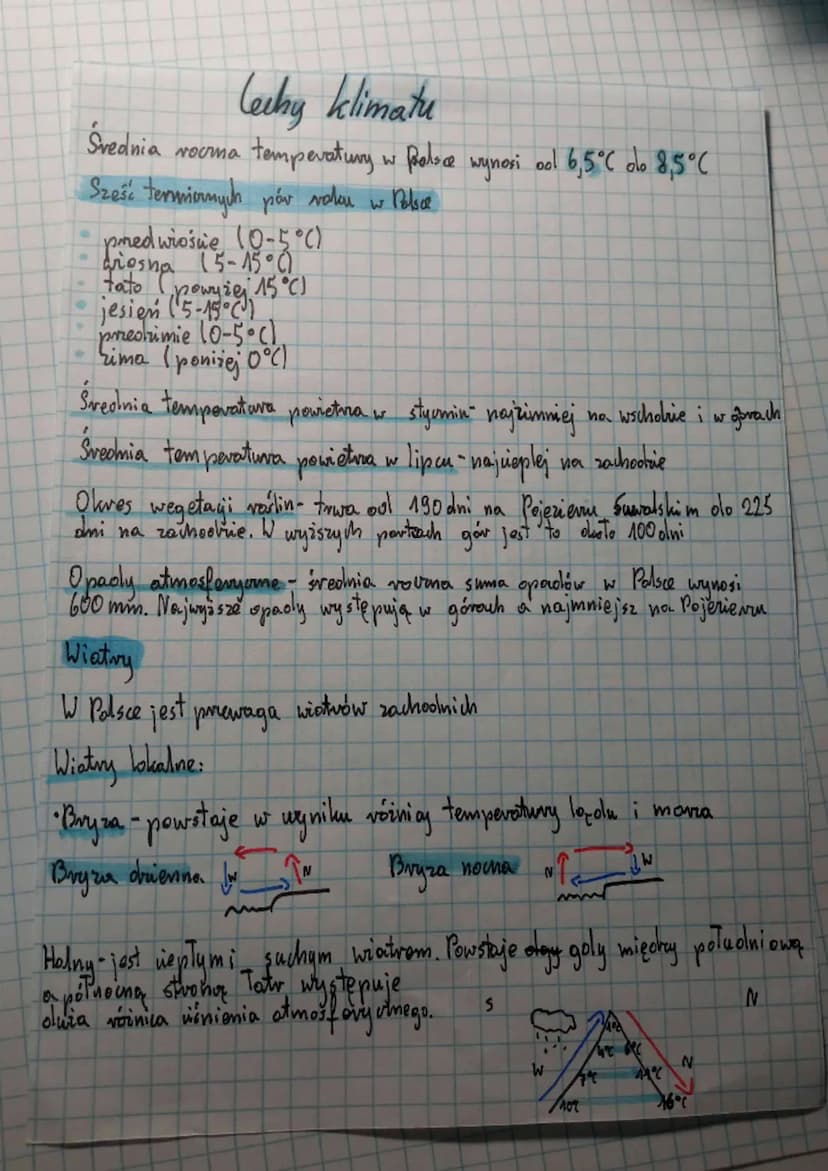 Cechy klimatu
Średnia roczna temperatury w Polsce wynosi od 6,5°C do 8,5°C
Sześć termicznych pór roku w Polsce
• przedwiośnie (0-5°C)
• wiosna (5-15°C)
• lato (powyżej 15°C)
• jesień (5-15°C)
• przedzimie (0-5°C)
• zima (poniżej 0°C)
Średnia temperatura powietrza w styczniu - najzimniej na wschodzie i w górach
Średnia temperatura powietrza w lipcu - najcieplej na zachodzie
Okres wegetacji roślin - trwa od 190 dni na Pojezierzu Suwalskim do 225
dni na zachodzie. W wyższych partiach gór jest to około 100 dni
Opady atmosferyczne - średnia roczna suma opadów w Polsce wynosi
600 mm. Najwyższe opady występują w górach a najmniejsz na Pojezierzu
Wiatry
W Polsce jest przewaga wiatrów zachodnich
Wiatry lokalne:
• Bryza - powstaje w wyniku różnicy temperatury lądu i morza
Bryza dzienna W N Bryza nocna N W
Halny - jest ciepłym i suchym wiatrem. Powstaje gdy między południową
a północną stroną Tatr występuje
duża różnica ciśnienia atmosferycznego. S N
1°C
4°C 6°C
W 7°C 11°C N
10°C 16°C